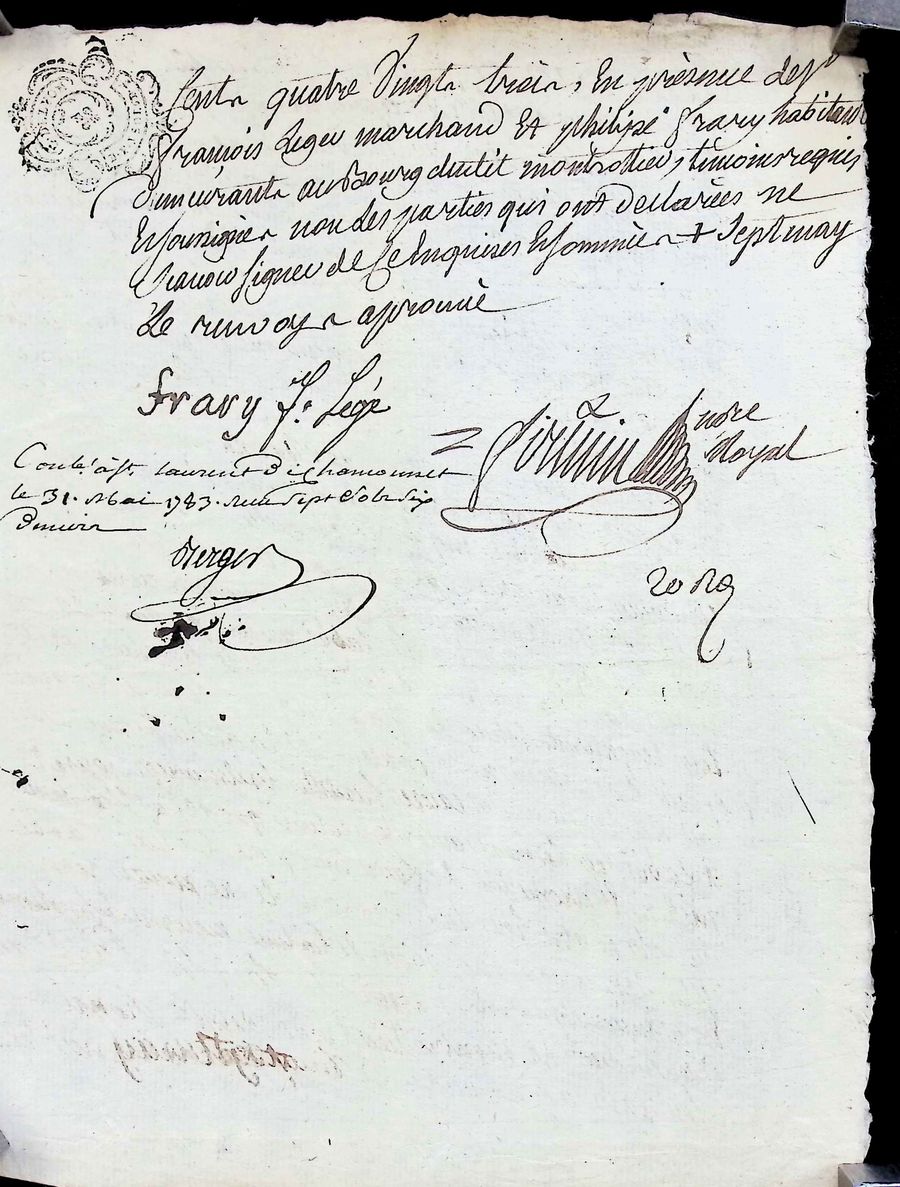 Cents quatre Vingts trois, En présence de sr
françois Leger marchand Et philipe frary habitans
demeurants au Bourg dudit montrottier, témoins requis
Et soussignés non les parties qui ont declarées ne
Scavoir signer de Ce Enquises Et sommées + Sept may
Le renvoy approuvé
frary f. Légé
notre
Royal
Conté à St. laurent de Chamousset
le 31. Mai 1783. Reçu sept sols six
deniers